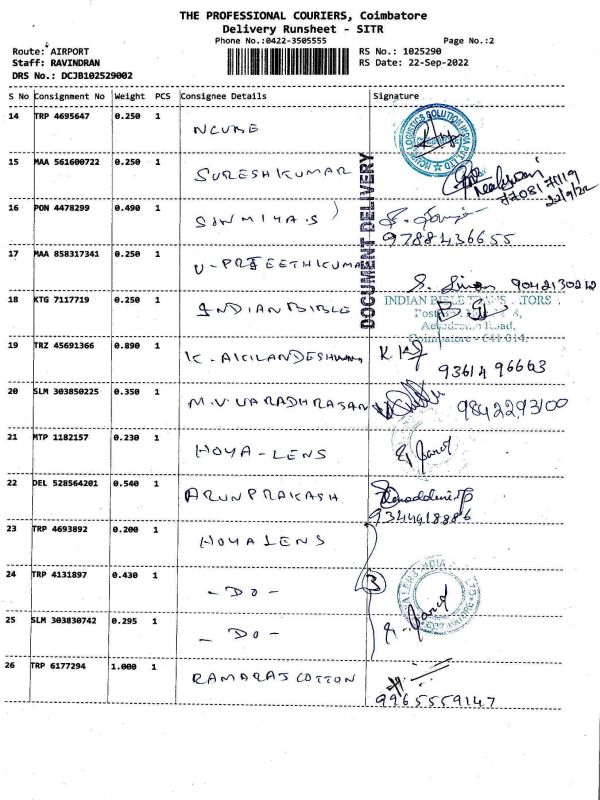 THE PROFESSIONAL COURIERS, Coimbatore
Delivery Runsheet - SITR
Phone No.:0422-3505555 Page No.:2
Route: AIRPORT RS No.: 1025290
Staff: RAVINDRAN RS Date: 22-Sep-2022
DRS No.: DCJB102529002
S No Consignment No Weight PCS Consignee Details Signature
14 TRP 4695647 0.250 1 NCUBE
15 MAA 561600722 0.250 1 SURESHKUMAR
7708171119
22/9/22
DOCUMENT DELIVERY
16 PON 4478299 0.490 1 SONMIYA.S
9788436655
17 MAA 858317341 0.250 1 U-PREETHIKUMA
9042130212
18 KTG 7117719 0.250 1 INDIANBIBLE
INDIAN BIBLE TRANSLATORS
Aerodrome Road,
Coimbatore - 641 014.
19 TRZ 45691366 0.890 1 K. AKILANDESHWARI
9361496663
20 SLM 303850225 0.350 1 M.V.VARADHRASAN
9842293100
21 MTP 1182157 0.230 1 HOYA-LENS
22 DEL 528564201 0.540 1 ARUNPRAKASH
9344418886
23 TRP 4693892 0.200 1 HOYALENS
24 TRP 4131897 0.430 1 - DO - 3
25 SLM 303830742 0.295 1 - DO -
26 TRP 6177294 1.000 1 RAMARAJ COTTON
9965559147